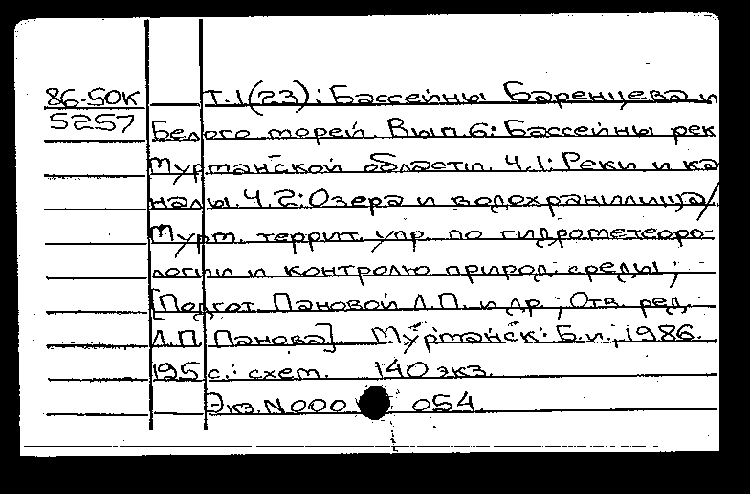 86-50К Т.1(23): Бассейны Баренцева и
5257 Белого морей. Вып.6: Бассейны рек
Мурманской области. Ч.1: Реки и ка-
налы. Ч.2: Озера и водохранилища/
Мурм. террит. упр. по гидрометеоро-
логии и контролю природ. среды;
[Подгот. Пановой Л.П. и др.; Отв. ред.
Л.П. Панова] Мурманск: Б.и., 1986.
195 с.: схем. 140 экз.
Экз. N 000 054.